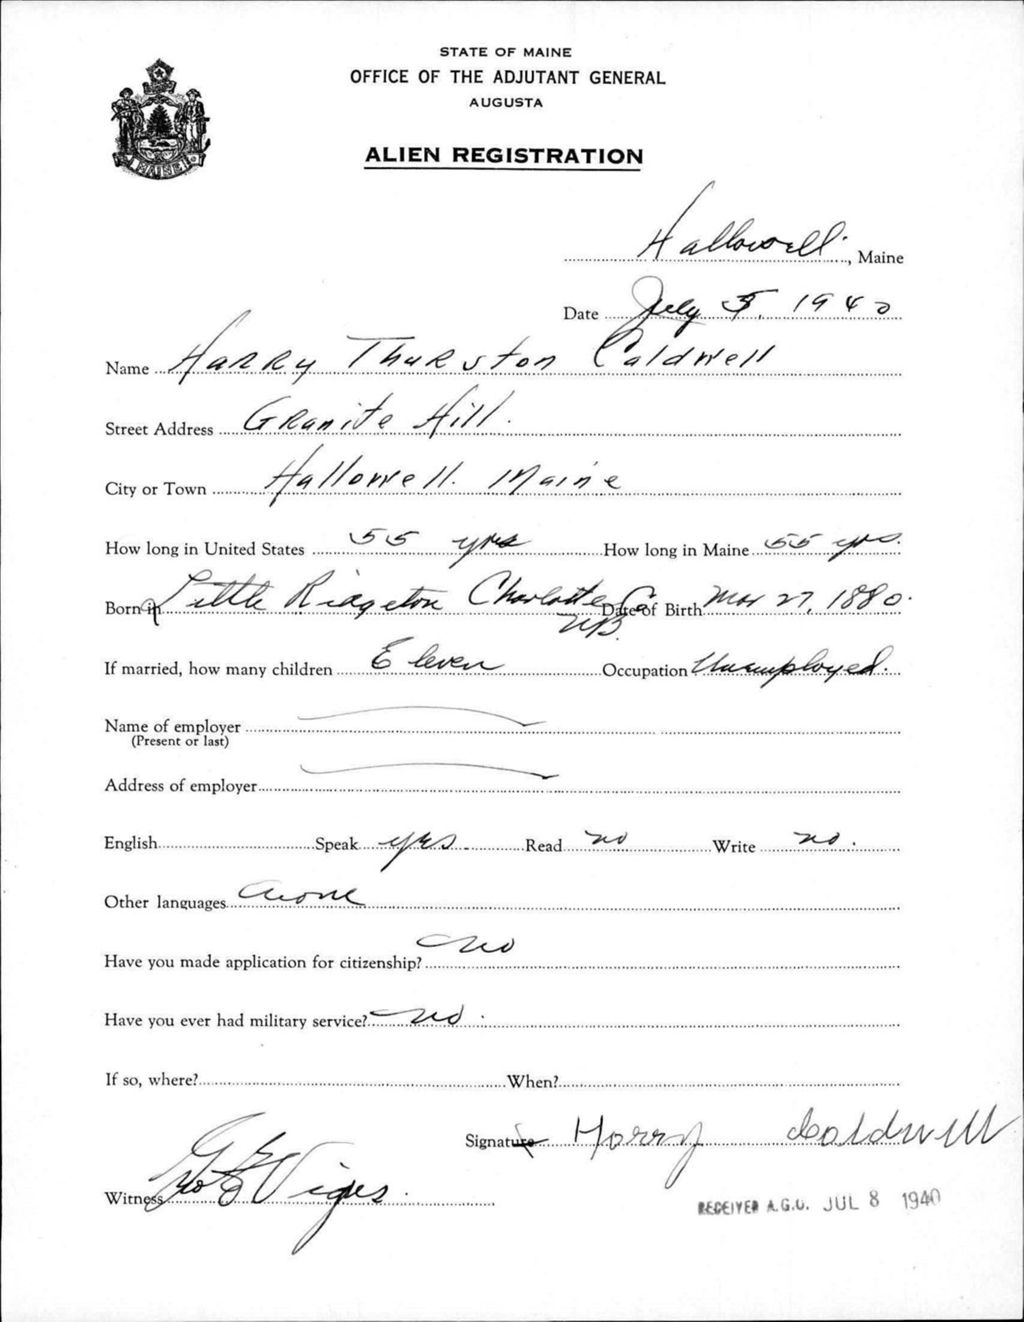 STATE OF MAINE
OFFICE OF THE ADJUTANT GENERAL
AUGUSTA
MAINE
ALIEN REGISTRATION
Hallowell, Maine
Date July 5, 1940
Name Harry Thurston Caldwell
Street Address Granite Hill.
City or Town Hallowell. Maine
How long in United States 55 yrs How long in Maine 55 yrs.
Born in Little Ridgeton Charlotte Co Date of Birth Mar 27, 1880.
NB.
If married, how many children Eleven Occupation Unemployed.
Name of employer
(Present or last)
Address of employer
English Speak yes Read no Write no.
Other languages none
Have you made application for citizenship? no
Have you ever had military service? no.
If so, where? When?
Signature Harry Caldwell
Witness Geo E Vigue
RECEIVED A.G.O. JUL 8 1940